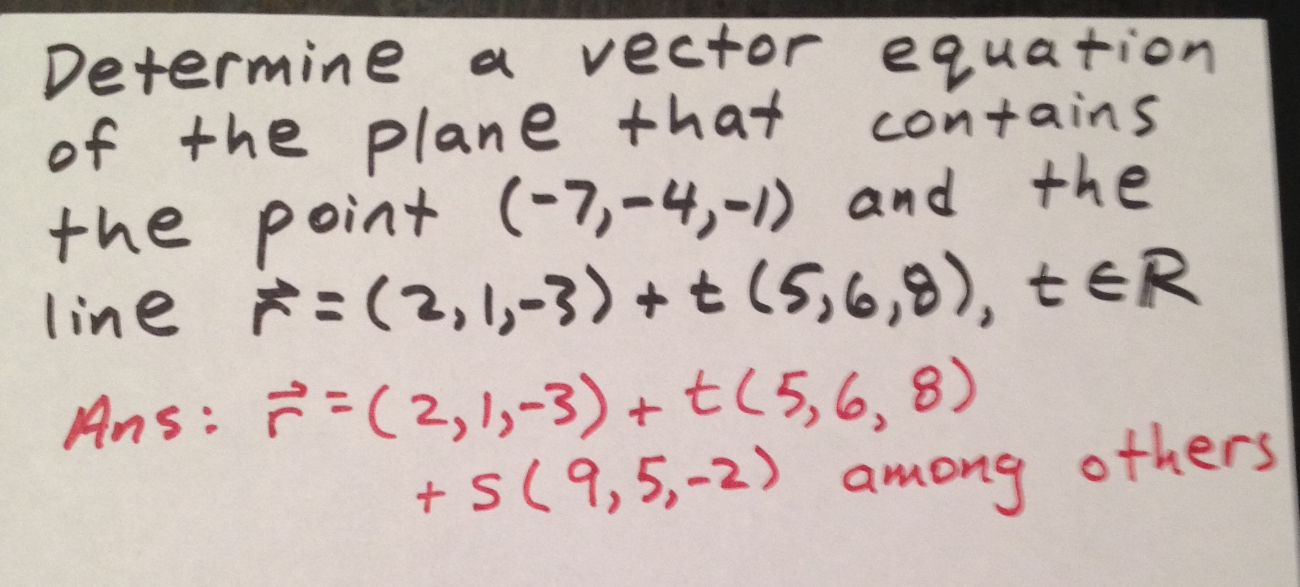 Determine a vector equation
of the plane that contains
the point (-7,-4,-1) and the
line r⃗ = (2,1,-3) + t(5,6,8), t∈R
Ans: r⃗ = (2,1,-3) + t(5,6,8)
+ s(9,5,-2) among others